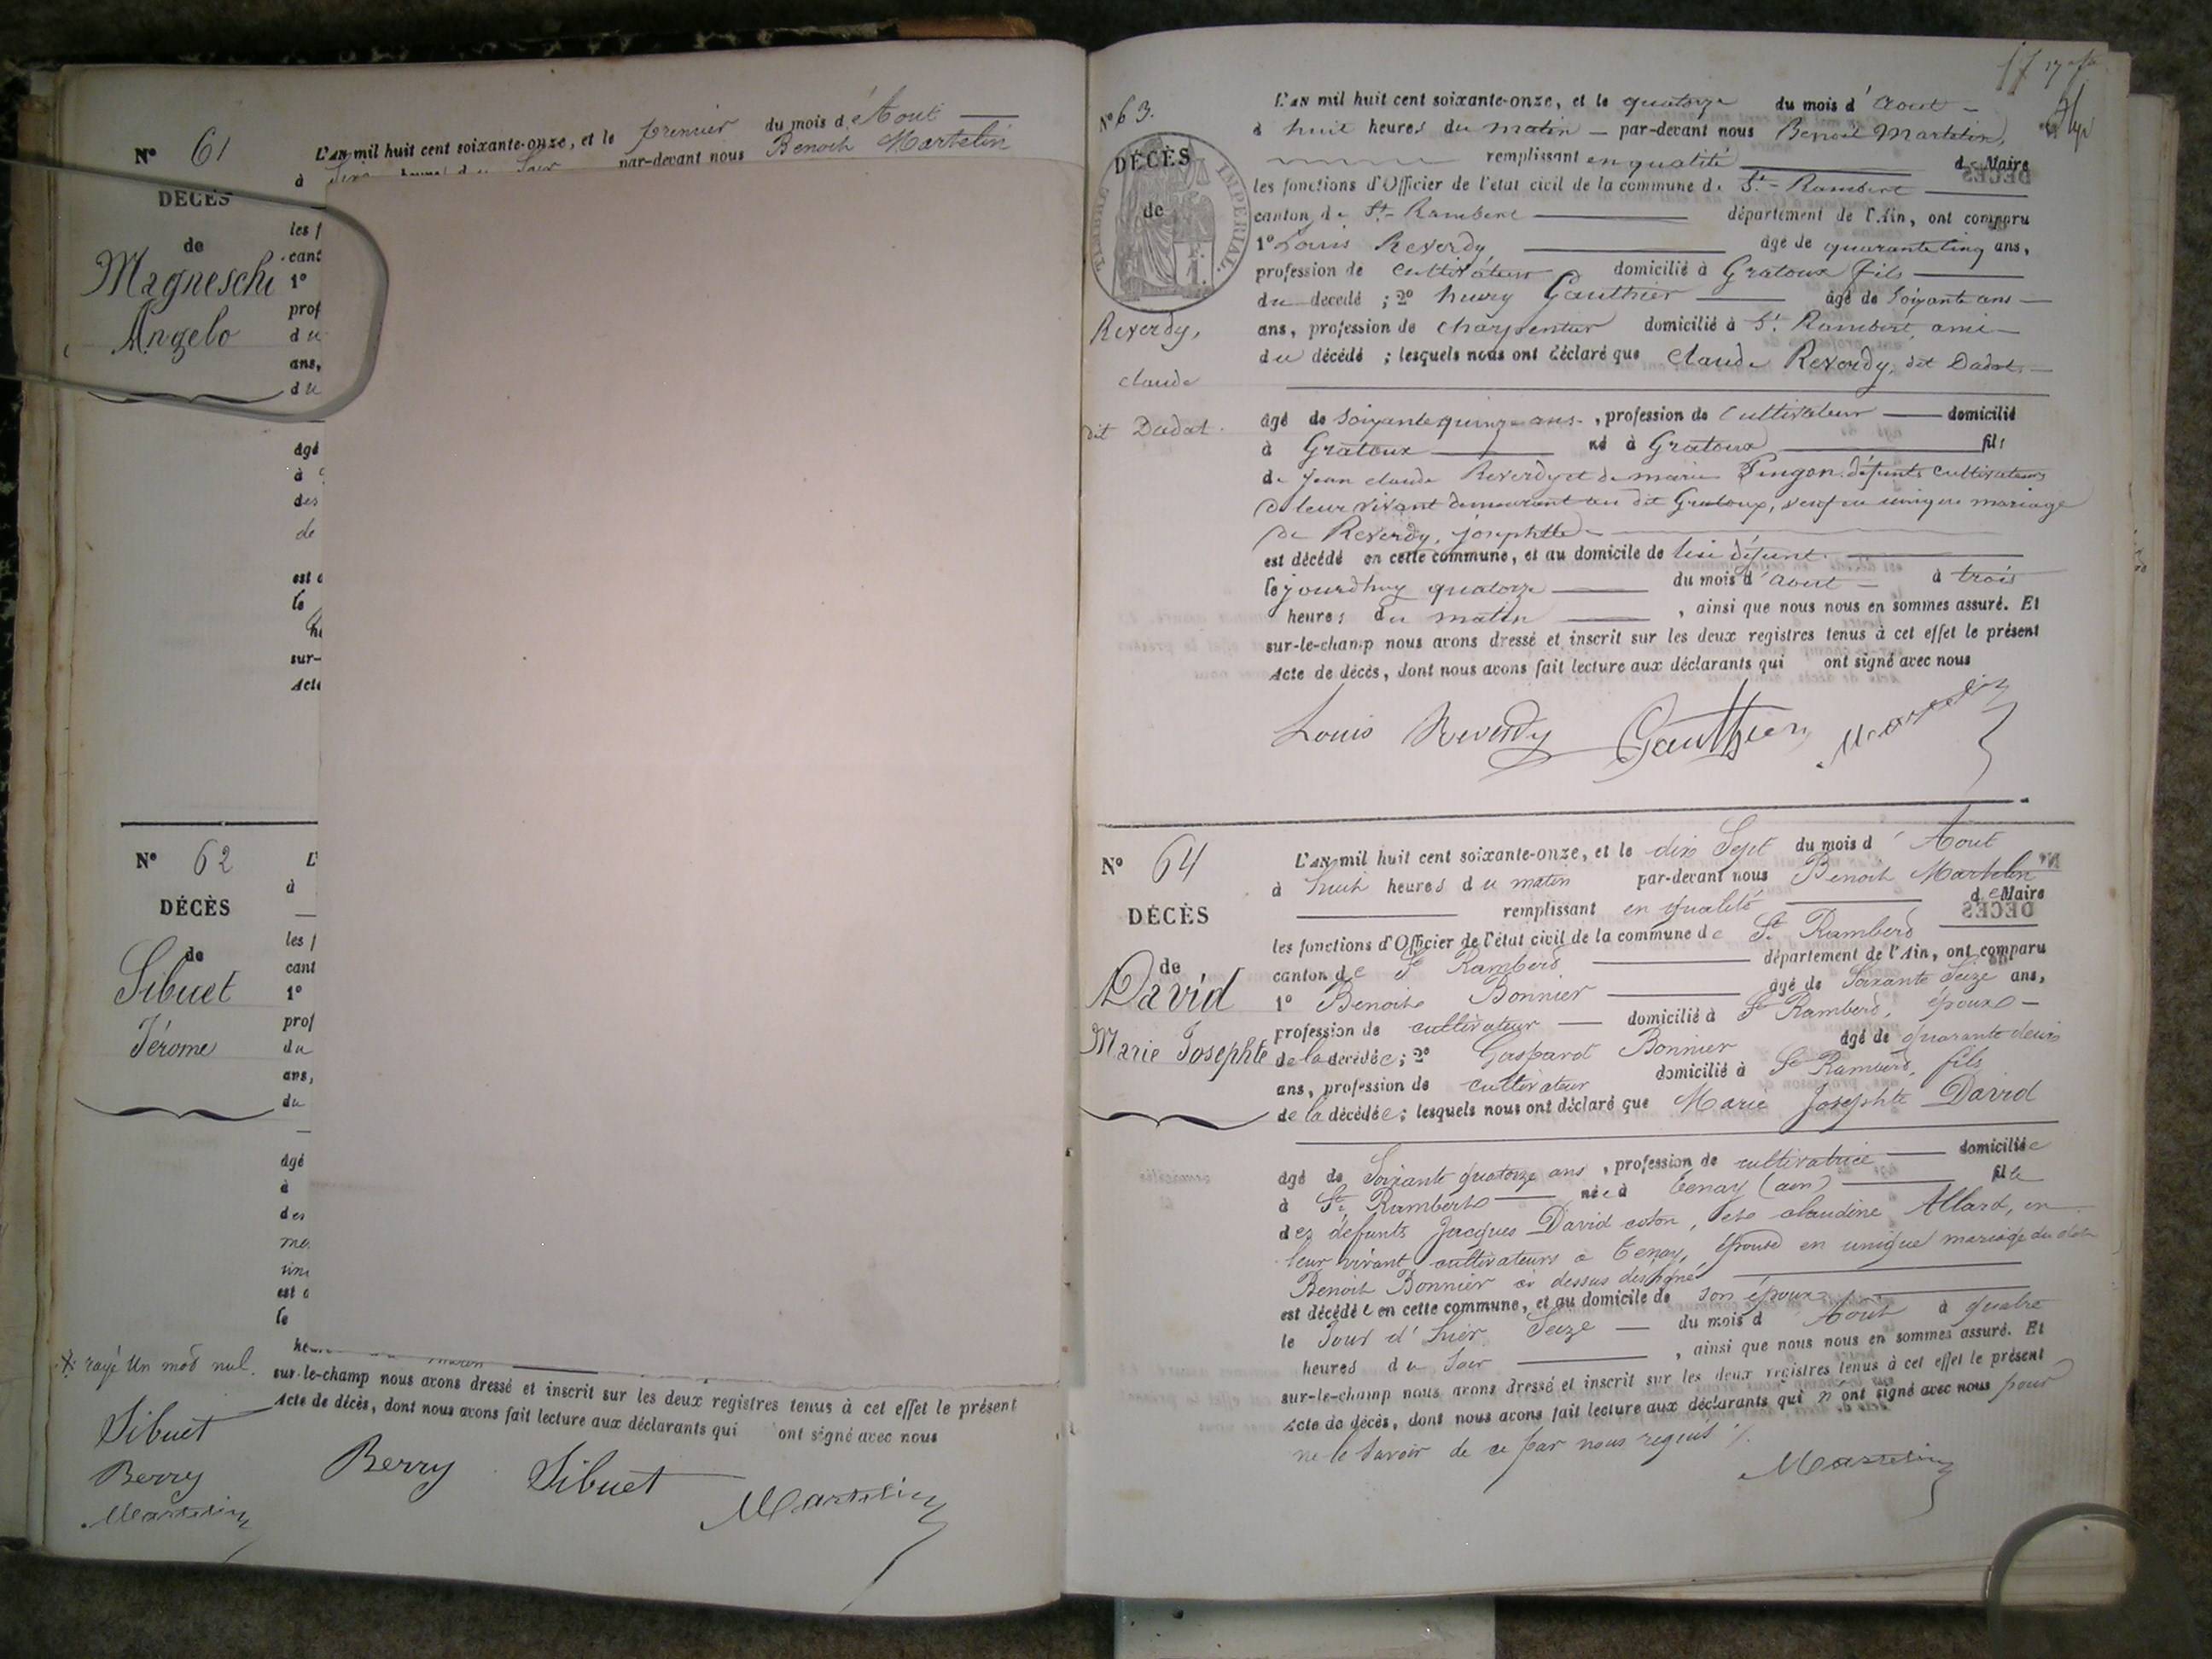 N° 61
DÉCÈS
de
Magneschi
Angelo
L'AN mil huit cent soixante-onze, et le premier du mois d'Aout
à heures du Soir par-devant nous Benoit Martelin
les f
cant
1°
prof
du
ans,
du
âgé
à
des
de
est d
le
he
sur-
Acte
N° 62
DÉCÈS
de
Sibuet
Jérome
L'
à
les f
cant
1°
prof
du
ans,
du
âgé
à
des
me
uni
est d
le
he
rayé Un mot nul.
sur-le-champ nous avons dressé et inscrit sur les deux registres tenus à cet effet le présent
Acte de décès, dont nous avons fait lecture aux déclarants qui ont signé avec nous
Sibuet
Berry
Martelin
Berry Sibuet Martelin
17
N° 63.
DÉCÈS
de
TIMBRE IMPÉRIAL.
Reverdy,
claude
dit Dadat.
L'AN mil huit cent soixante-onze, et le quatorze du mois d'aout
à huit heures du matin par-devant nous Benoit Martelin,
remplissant en qualité de Maire
les fonctions d'Officier de l'état civil de la commune de St-Rambert
canton de St-Rambert département de l'Ain, ont comparu
1° Louis Reverdy âgé de quarante cinq ans,
profession de cultivateur domicilié à Gratoux fils
du décedé ; 2° henry Gauthier âgé de soixante ans
ans, profession de charpentier domicilié à St Rambert ami
du décédé ; lesquels nous ont déclaré que Claude Reverdy, dit Dadat,
âgé de soixante quinze ans, profession de Cultivateur domicilié
à Gratoux né à Gratoux fils
de jean claude Reverdy et de marie Pingon défunts cultivateurs
de leur vivant demeurant au dit Gratoux, veuf en unique mariage
de Reverdy, josephte
est décédé en cette commune, et au domicile de lui défunt
le jourdhuy quatorze du mois d'aout à trois
heures du matin, ainsi que nous nous en sommes assuré. Et
sur-le-champ nous avons dressé et inscrit sur les deux registres tenus à cet effet le présent
Acte de décès, dont nous avons fait lecture aux déclarants qui ont signé avec nous
Louis Reverdy Gauthier Martelin
N° 64
DÉCÈS
de
David
Marie Josephte
L'AN mil huit cent soixante-onze, et le dix Sept du mois d'Aout
à huit heures du matin par-devant nous Benoit Martelin
remplissant en qualité de Maire
les fonctions d'Officier de l'état civil de la commune de St Rambert
canton de St Rambert département de l'Ain, ont comparu
1° Benoit Bonnier âgé de Soixante Seize ans,
profession de cultivateur domicilié à St Rambert, époux
de la décédée; 2° Gaspard Bonnier âgé de quarante deux
ans, profession de cultivateur domicilié à St Rambert, fils
de la décédée; lesquels nous ont déclaré que Marie Josephte David
âgé de Soixante quatorze ans, profession de cultivatrice domiciliée
à St Rambert née à Tenay (ain) fille
des défunts Jacques David coton, et claudine Allard, en
leur vivant cultivateurs à Tenay, épouse en unique mariage du dit
Benoit Bonnier ci dessus désigné
est décédée en cette commune, et au domicile de son époux
le Jour d'hier Seize du mois d'Aout à quatre
heures du Soir, ainsi que nous nous en sommes assuré. Et
sur-le-champ nous avons dressé et inscrit sur les deux registres tenus à cet effet le présent
Acte de décès, dont nous avons fait lecture aux déclarants qui n'ont signé avec nous pour
ne le Savoir de ce par nous requis
Martelin